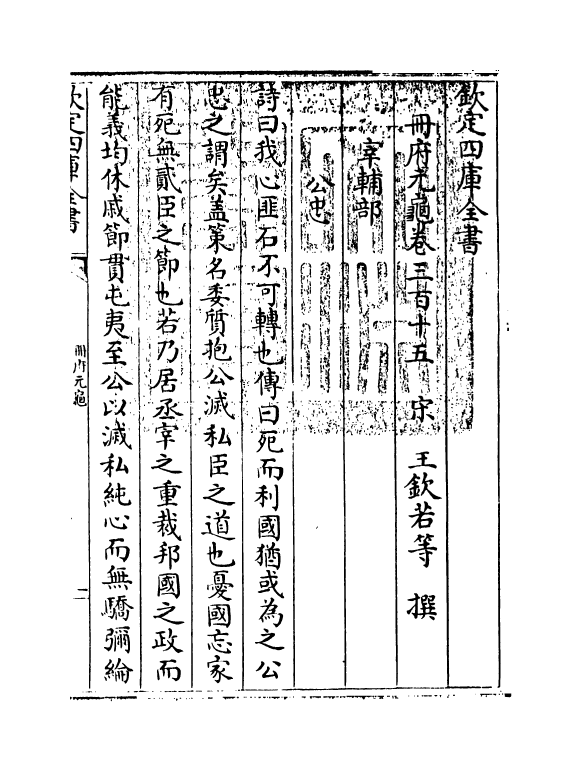 欽定四庫全書
冊府元龜卷三百十五　宋　王欽若等　撰
宰輔部
公忠
詩曰我心匪石不可轉也傳曰死而利國猶或為之公
忠之謂矣蓋策名委質抱公滅私臣之道也憂國忘家
有死無貳臣之節也若乃居丞宰之重裁邦國之政而
能義均休戚節貫屯夷至公以滅私純心而無驕彌綸
欽定四庫全書
冊府元龜